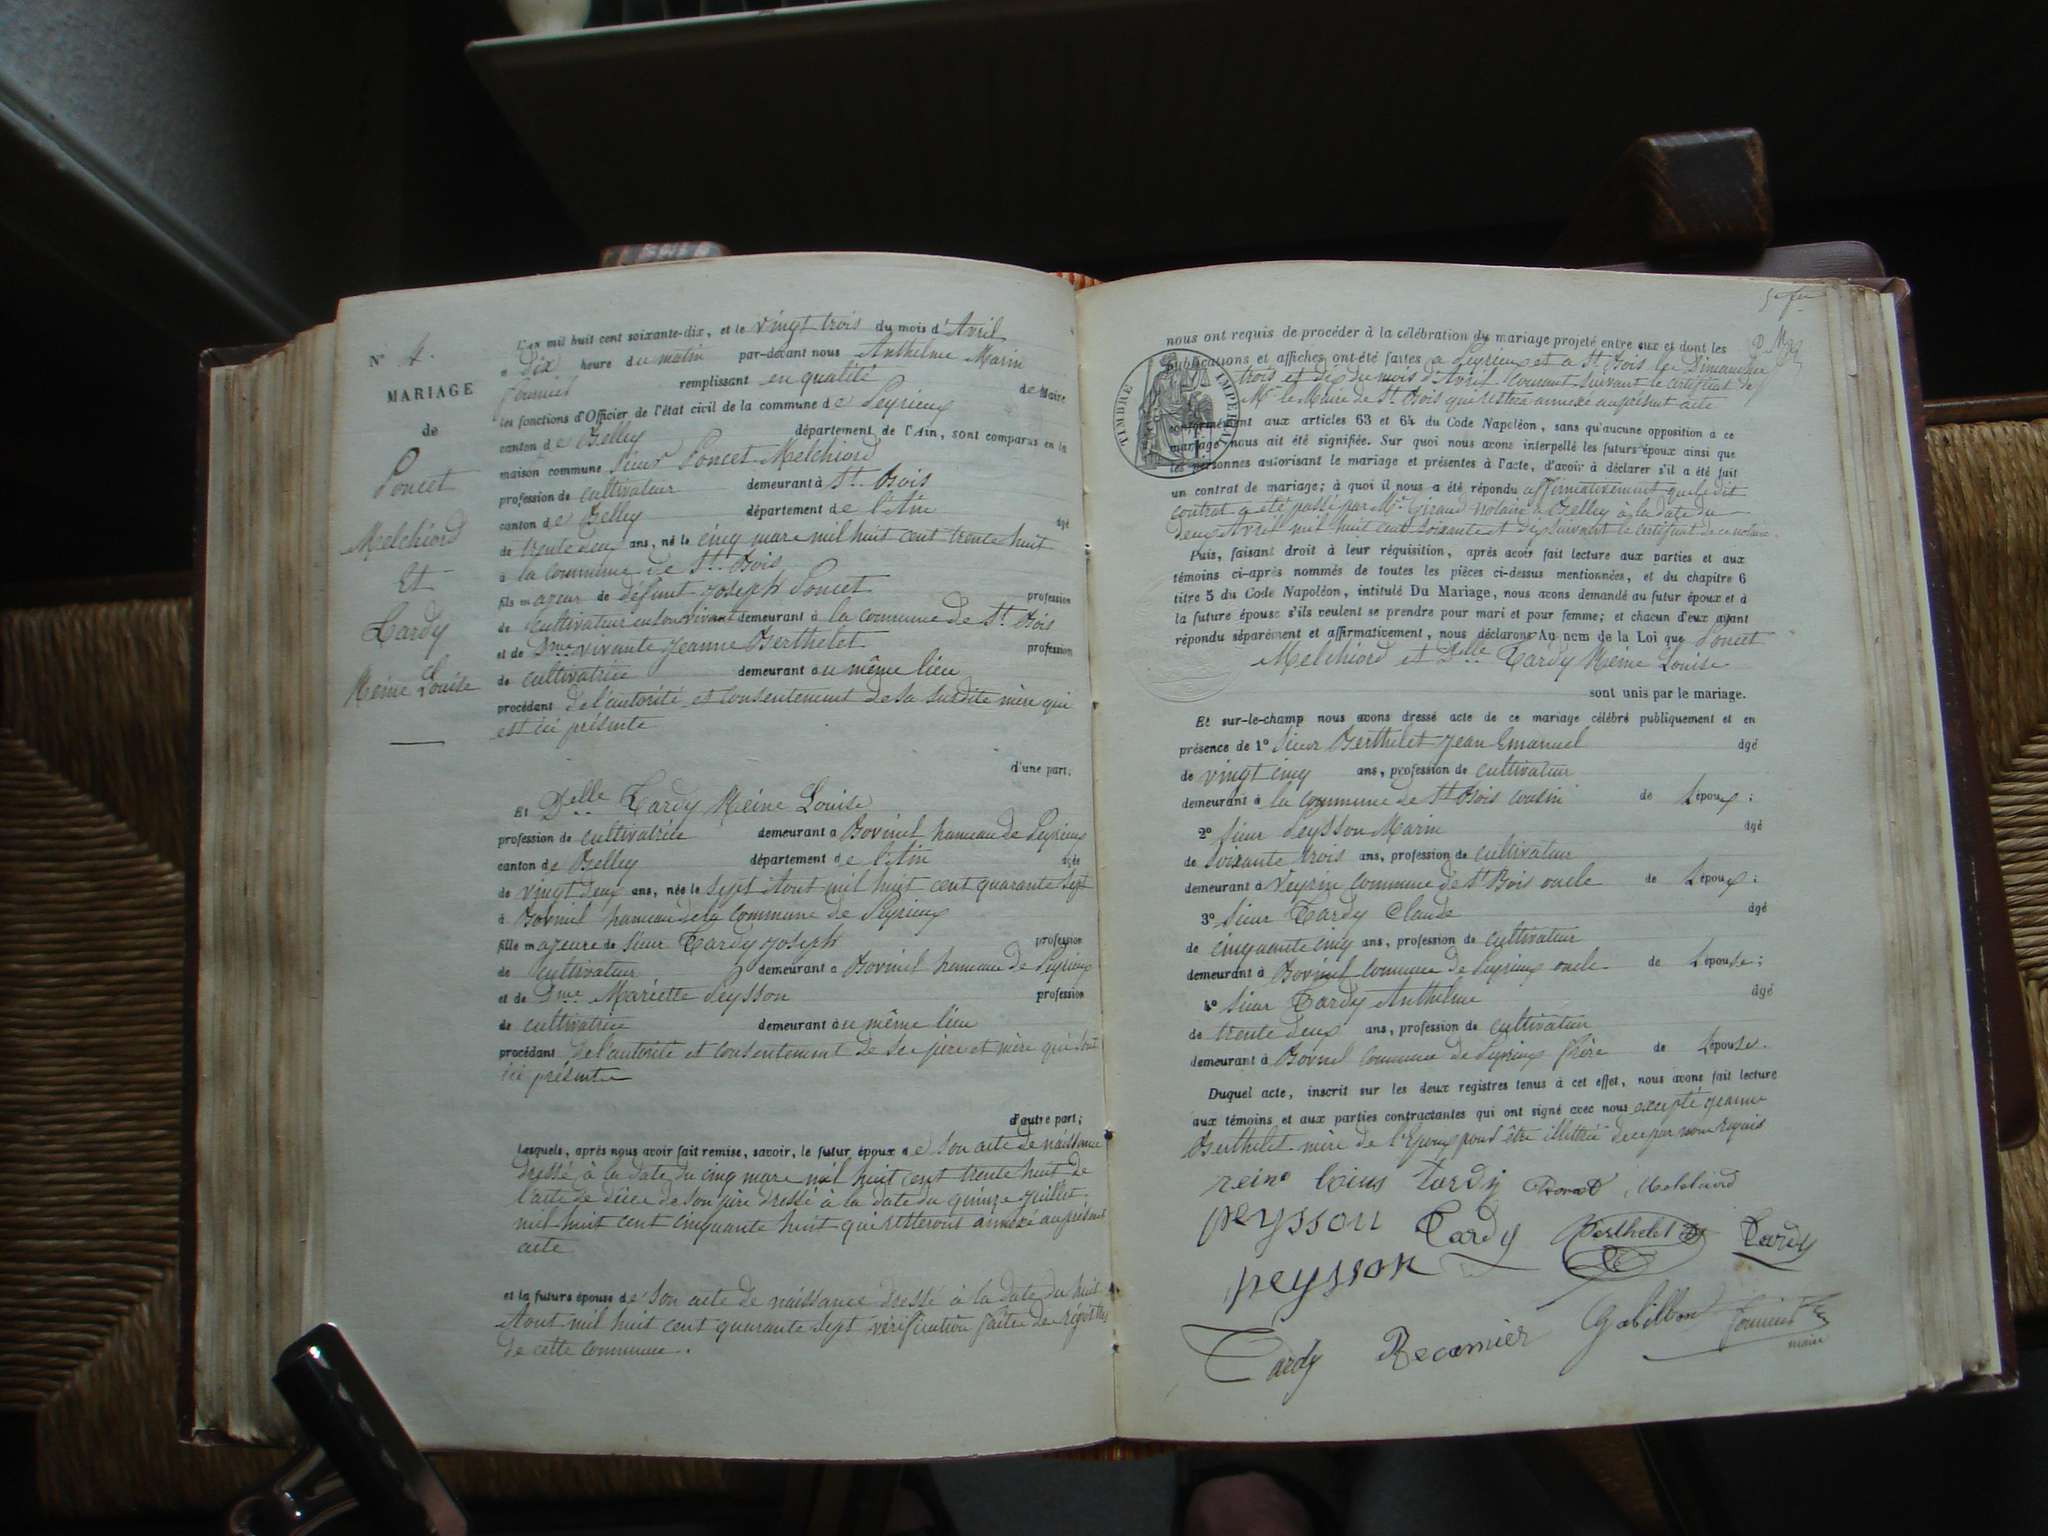 N° 4.
MARIAGE
de
Poncet
Melchiord
Et
Tardy
Reine Louise
L'an mil huit cent soixante-dix, et le vingt trois du mois d'Avril
a dix heure du matin par-devant nous Anthelme Marin
fournier remplissant en qualité de Maire
les fonctions d'Officier de l'état civil de la commune de Peyrieux
canton de Belley département de l'Ain, sont comparus en la
maison commune Sieur Poncet Melchiord
profession de cultivateur demeurant à St. Bois
canton de Belley département de l'Ain âgé
de trente deux ans, né le cinq mars mil huit cent trente huit
à la commune de St. Bois
fils majeur de défunt Joseph Poncet profession
de cultivateur en son vivant demeurant à la commune de St. Bois
et de Dme vivante Jeanne Berthelet profession
de cultivatrice demeurant au même lieu
procédant de l'autorité et consentement de sa susdite mère qui
est ici présente
d'une part;
Et Delle Tardy Reine Louise
profession de cultivatrice demeurant a Bovinel hameau de Peyrieux
canton de Belley département de l'Ain âgée
de vingt deux ans, née le sept Aout mil huit cent quarante sept
à Bovinel hameau de la commune de Peyrieux
fille majeure de Sieur Tardy Joseph profession
de cultivateur demeurant a Bovinel hameau de Peyrieux
et de Dme Mariette Peysson profession
de cultivatrice demeurant au même lieu
procédant de l'autorité et consentement de ses père et mère qui sont
ici présents
d'autre part;
Lesquels, après nous avoir fait remise, savoir, le futur époux de son acte de naissance
dressé à la date du cinq mars mil huit cent trente huit de
l'acte de décès de son père dressé à la date du quinze Juillet
mil huit cent cinquante huit qui resteront annexé au présent
acte
et la future épouse de son acte de naissance dressé à la date du huit
Aout mil huit cent quarante sept vérification faite des régistres
de cette commune.
5e fet
nous ont requis de procéder à la célébration du mariage projeté entre eux et dont les
publications et affiches ont été faites à Peyrieux et a St. Bois les Dimanches
trois et dix du mois d'Avril courant suivant le certificat de
Mr le Maire de St. Bois qui restera annexé au présent acte
TIMBRE IMPÉRIAL
conformément aux articles 63 et 64 du Code Napoléon, sans qu'aucune opposition à ce
mariage nous ait été signifiée. Sur quoi nous avons interpellé les futurs époux ainsi que
les personnes autorisant le mariage et présentes à l'acte, d'avoir à déclarer s'il a été fait
un contrat de mariage; à quoi il nous a été répondu affirmativement que le dit
contrat a été passé par Me Giraud notaire à Belley à la date du
deux Avril mil huit cent soixante et dix suivant le certificat de ce notaire.
Puis, faisant droit à leur réquisition, après avoir fait lecture aux parties et aux
témoins ci-après nommés de toutes les pièces ci-dessus mentionnées, et du chapitre 6
titre 5 du Code Napoléon, intitulé Du Mariage, nous avons demandé au futur époux et à
la future épouse s'ils veulent se prendre pour mari et pour femme; et chacun d'eux ayant
répondu séparément et affirmativement, nous déclarons Au nom de la Loi que Poncet
Melchiord et Delle Tardy Reine Louise
sont unis par le mariage.
Et sur-le-champ nous avons dressé acte de ce mariage célébré publiquement et en
présence de 1° Sieur Berthelet Jean Emanuel âgé
de vingt cinq ans, profession de cultivateur
demeurant à la commune de St Bois cousin de l'époux;
2° Sieur Peysson Marin âgé
de soixante trois ans, profession de cultivateur
demeurant à Veyrin commune de St Bois oncle de l'époux;
3° Sieur Tardy Claude âgé
de cinquante cinq ans, profession de cultivateur
demeurant à Bovinel commune de Peyrieux oncle de l'épouse;
4° Sieur Tardy Anthelme âgé
de trente deux ans, profession de cultivateur
demeurant à Bovinel commune de Peyrieux frère de l'épouse.
Duquel acte, inscrit sur les deux registres tenus à cet effet, nous avons fait lecture
aux témoins et aux parties contractantes qui ont signé avec nous excepté Jeanne
Berthelet mère de l'Epoux pour être illettrée de ce par nous requis
reine louis tardy Poncet Melchiord
peysson Tardy Berthelet Tardy
peysson
Tardy Recamier Gabillon fournier
maire